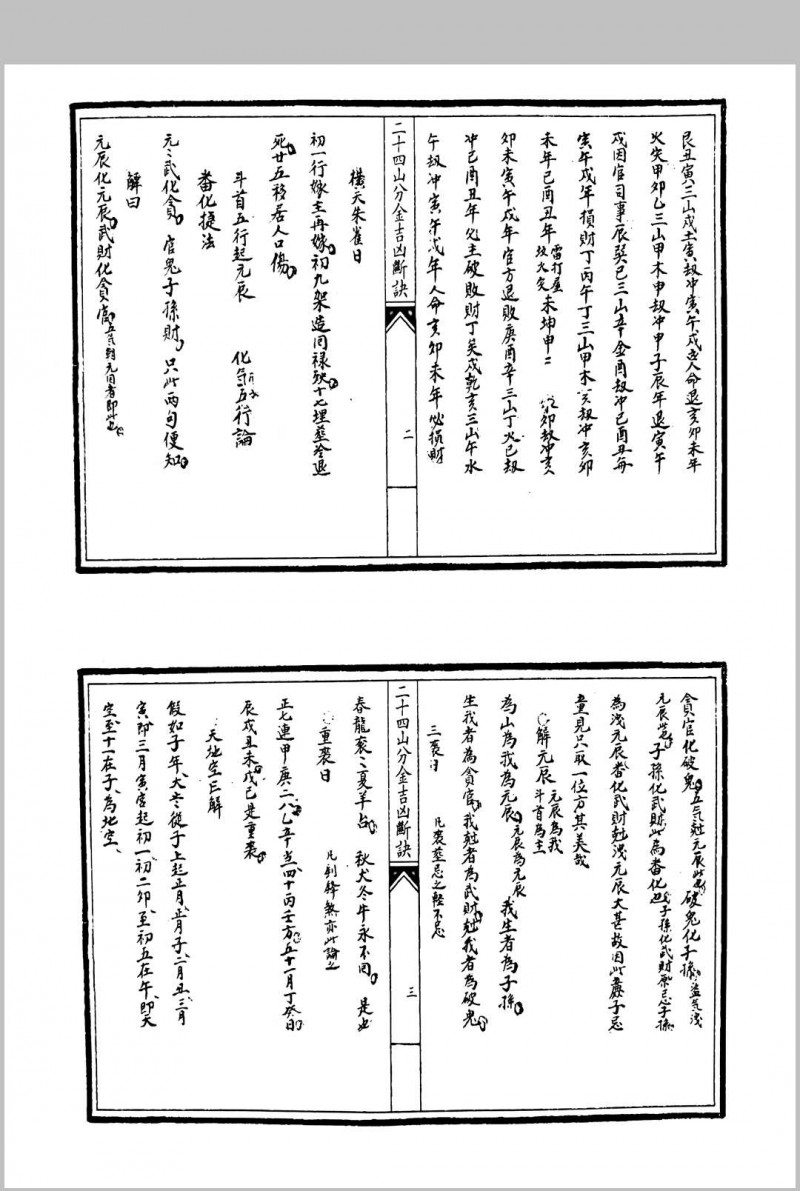 艮丑寅三山戍土寅劫冲寅午戍年人命退亥卯未年
火災甲卯乙三山甲木申劫冲甲子辰年退寅午
戍因官司事辰巽巳三山辛金酉劫冲巳酉丑年
寅午戍年損財丁丙午丁三山甲木亥劫冲亥卯
未年巳酉丑年雷打屋火災未坤申二 卯劫冲亥
卯未寅午戍年官方退敗庚酉辛三山丁火巳劫
冲巳酉丑年必主破敗財丁癸戍乾亥三山午水
午劫冲寅午戍年人命亥卯未年必損財
二十四山分金吉凶斷訣
二
橫天朱雀日
初一行嫁主再嫁初九架造回祿殃十七埋葬冷退
死廿五移居人口傷
斗首五行起元辰 化氣五行論
番化捷法
元辰武化貪 官鬼子孫財 只此兩句便知
解曰
元辰化元辰武財化貪官
貪官化破鬼五氣尅元辰破鬼化子孫
元辰 子孫化武財此為番化也子孫化武財原忌子孫
為洩元辰番化武財尅洩元辰大甚故因此嚴子忌
重見只取一位方其美哉
解元辰 元辰為我 斗首為主
為山為我為元辰元辰為元辰我生者為子孫
生我者為貪官我尅者為武財尅我者為破鬼
三喪日 凡喪葬忌之輕不忌
二十四山分金吉凶斷訣
三
春龍喪夏羊占 秋犬冬牛永不回 是也
重喪日 凡到鋒煞亦此論之
正七連甲庚二八乙辛當四十丙壬方五十一月丁癸日
辰戍丑未戊己是重喪
天地空亡解
假如子年大從子上起正月正月子二月丑三月
寅即三月寅宮起初一初二卯至初五在午即天
空至十一在子為地空